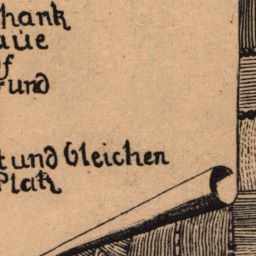 hank
aue
f
rund
t und Gleichen
Plak